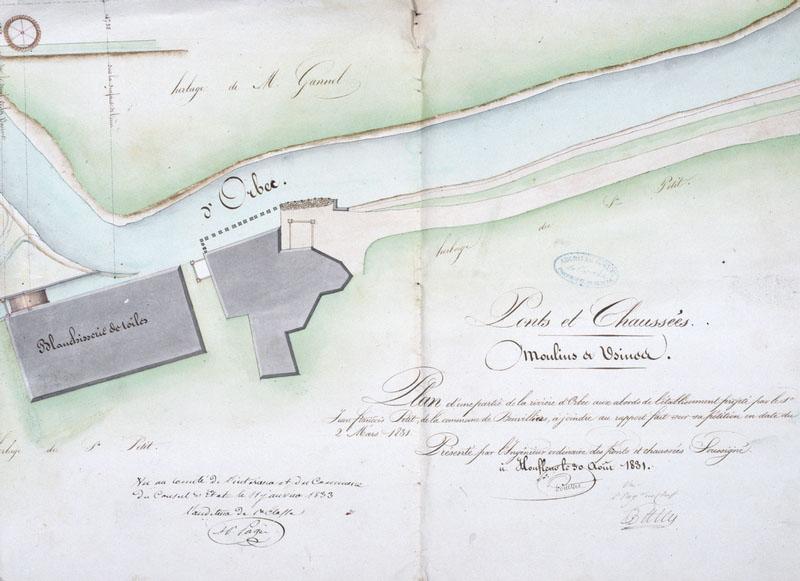 herbage de M. Gannel
d'Orbec.
herbage du Sr. Petit.
Blanchisserie de toiles
Ponts et Chaussées.
Moulins et Usines.
Plan d'une partie de la rivière d'Orbec aux abords de l'établissement projeté par le Sr.
Jean francois Petit, de la commune de à joindre au rapport fait sur sa pétition en date du
2 Mars 1831.
Présenté par l'Ingénieur ordinaire des ponts et chaussées Soussigné.
à Honfleur le 30 Août 1831.
herbage du Sr. Petit.
Vu au comité de l'intérieur et du Commerce
du Conseil d'Etat le 11 janvier 1833
l'auditeur de 1re classe
Vu